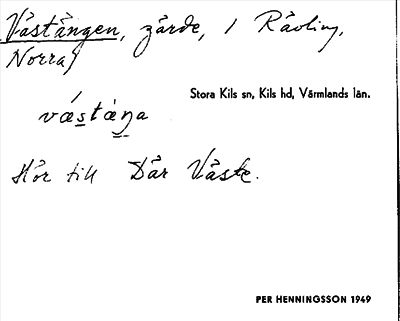 Västängen, gärde, 1 Rävling,
Norra)
Stora Kils sn, Kils hd, Värmlands län.
väståŋa
Hör till Där Väste.
PER HENNINGSSON 1949